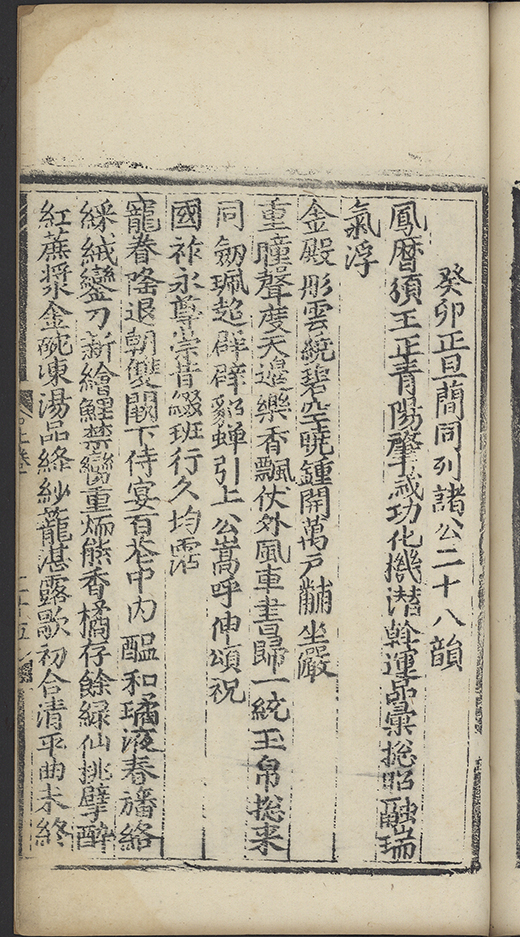 癸卯正旦蕳同列諸公二十八韻
鳳曆頒王正青陽肇歲功化機潜斡運品彙捴昭融瑞
氣浮
金殿彤雲繞碧空曉鍾開萬戶黼坐嚴
重瞳聲度天邉樂香飄仗外風車書歸一統玉帛捴来
同劒珮趍辟貂蟬引上公嵩呼伸頌祝
國祚永尊崇昔綴班行久均霑
寵眷隆退朝雙闕下侍宴百花中内醖和璚液春旛絡
綵絨鑾刀新繪鯉禁臠重炳熊香橘存餘緑仙挑擘醉
紅蔗漿金碗凍湯品絳紗蘢湛露歌初合清平曲未終
上卷
二十五